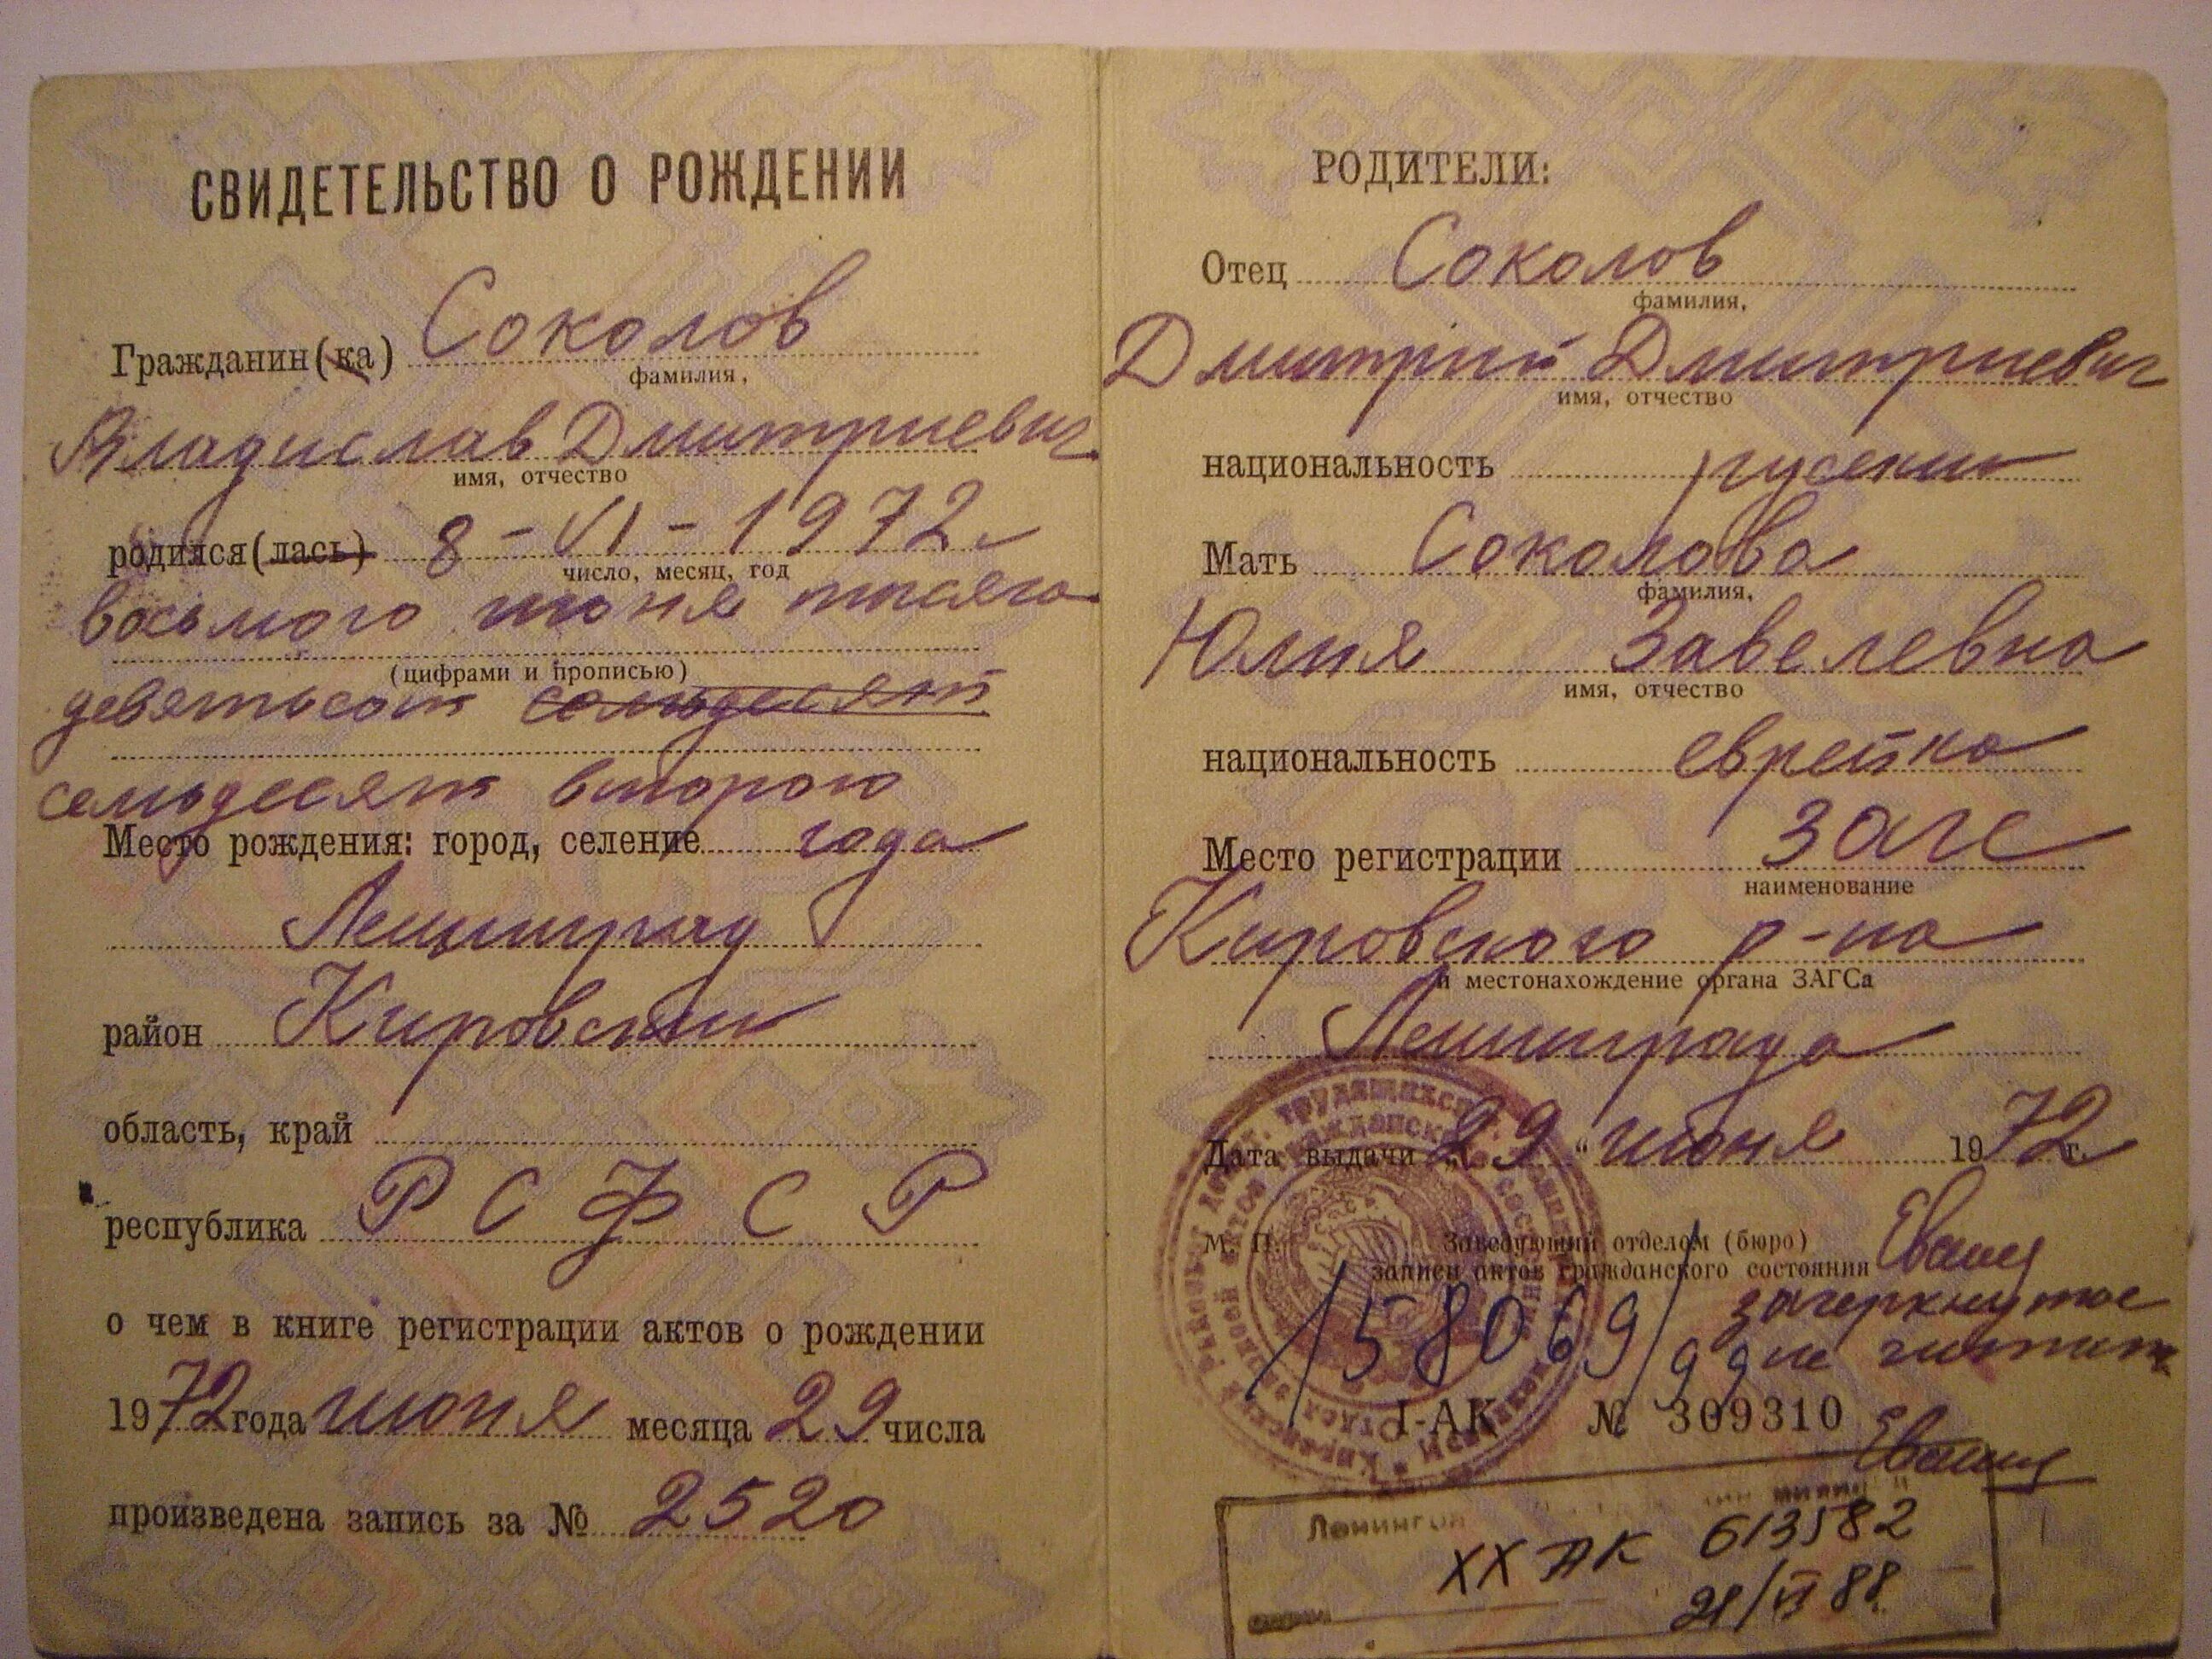 СВИДЕТЕЛЬСТВО О РОЖДЕНИИ
Гражданин(ка) Соколов
фамилия,
Владислав Дмитриевич
имя, отчество
родился(лась) 8-VI-1972
число, месяц, год
восьмого июня тысяча
(цифрами и прописью)
девятьсот семьдесят
семьдесят второго
Место рождения: город, селение года
Ленинград
район Кировский
область, край
республика РСФСР
о чем в книге регистрации актов о рождении
1972 года июня месяца 29 числа
произведена запись за № 2520
РОДИТЕЛИ:
Отец Соколов
фамилия,
Дмитрий Дмитриевич
имя, отчество
национальность русский
Мать Соколова
фамилия,
Юлия Завелевна
имя, отчество
национальность еврейка
Место регистрации загс
наименование
Кировского р-на
и местонахождение органа ЗАГСа
Ленинграда
Дата выдачи „29“ июня 1972 г.
М. П. Заведующий отделом (бюро)
записи актов гражданского состояния
158069 зачеркнутое
не читать
I-АК № 309310
XX АК 613582
21/VI 88